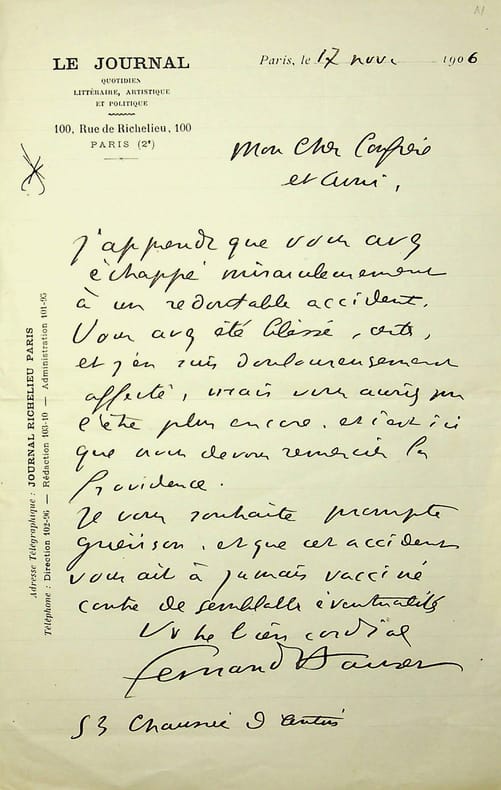 LE JOURNAL
QUOTIDIEN
LITTÉRAIRE, ARTISTIQUE
ET POLITIQUE
100, Rue de Richelieu, 100
PARIS (2e)
Paris, le 17 nov. 1906
Mon cher Confrère
et ami,
J'apprends que vous avez
échappé miraculeusement
à un redoutable accident.
Vous avez été blessé, certes,
et j'en suis douloureusement
affecté, mais vous auriez pu
l'être plus encore, et c'est ici
que nous devons remercier la
Providence.
Je vous souhaite prompte
guérison, et que cet accident
vous ait à jamais vacciné
contre de semblables éventualités
Vtre bien cordial
Fernand Hauser
53 Chaussée d'Antin
Adresse Télégraphique : JOURNAL RICHELIEU PARIS
Téléphone : Direction 102-96 — Rédaction 103-10 — Administration 101-95